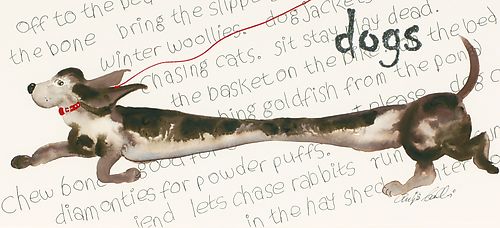 off to the bed
bring the slippe
the bone
dog jackets
winter woollies.
sit stay play dead.
dogs
chasing cats.
the basket on the
the bed
goldfish from the pond
please
dog
Chew bone
good for
diamonties for powder puffs.
lets chase rabbits run
in the hay shed